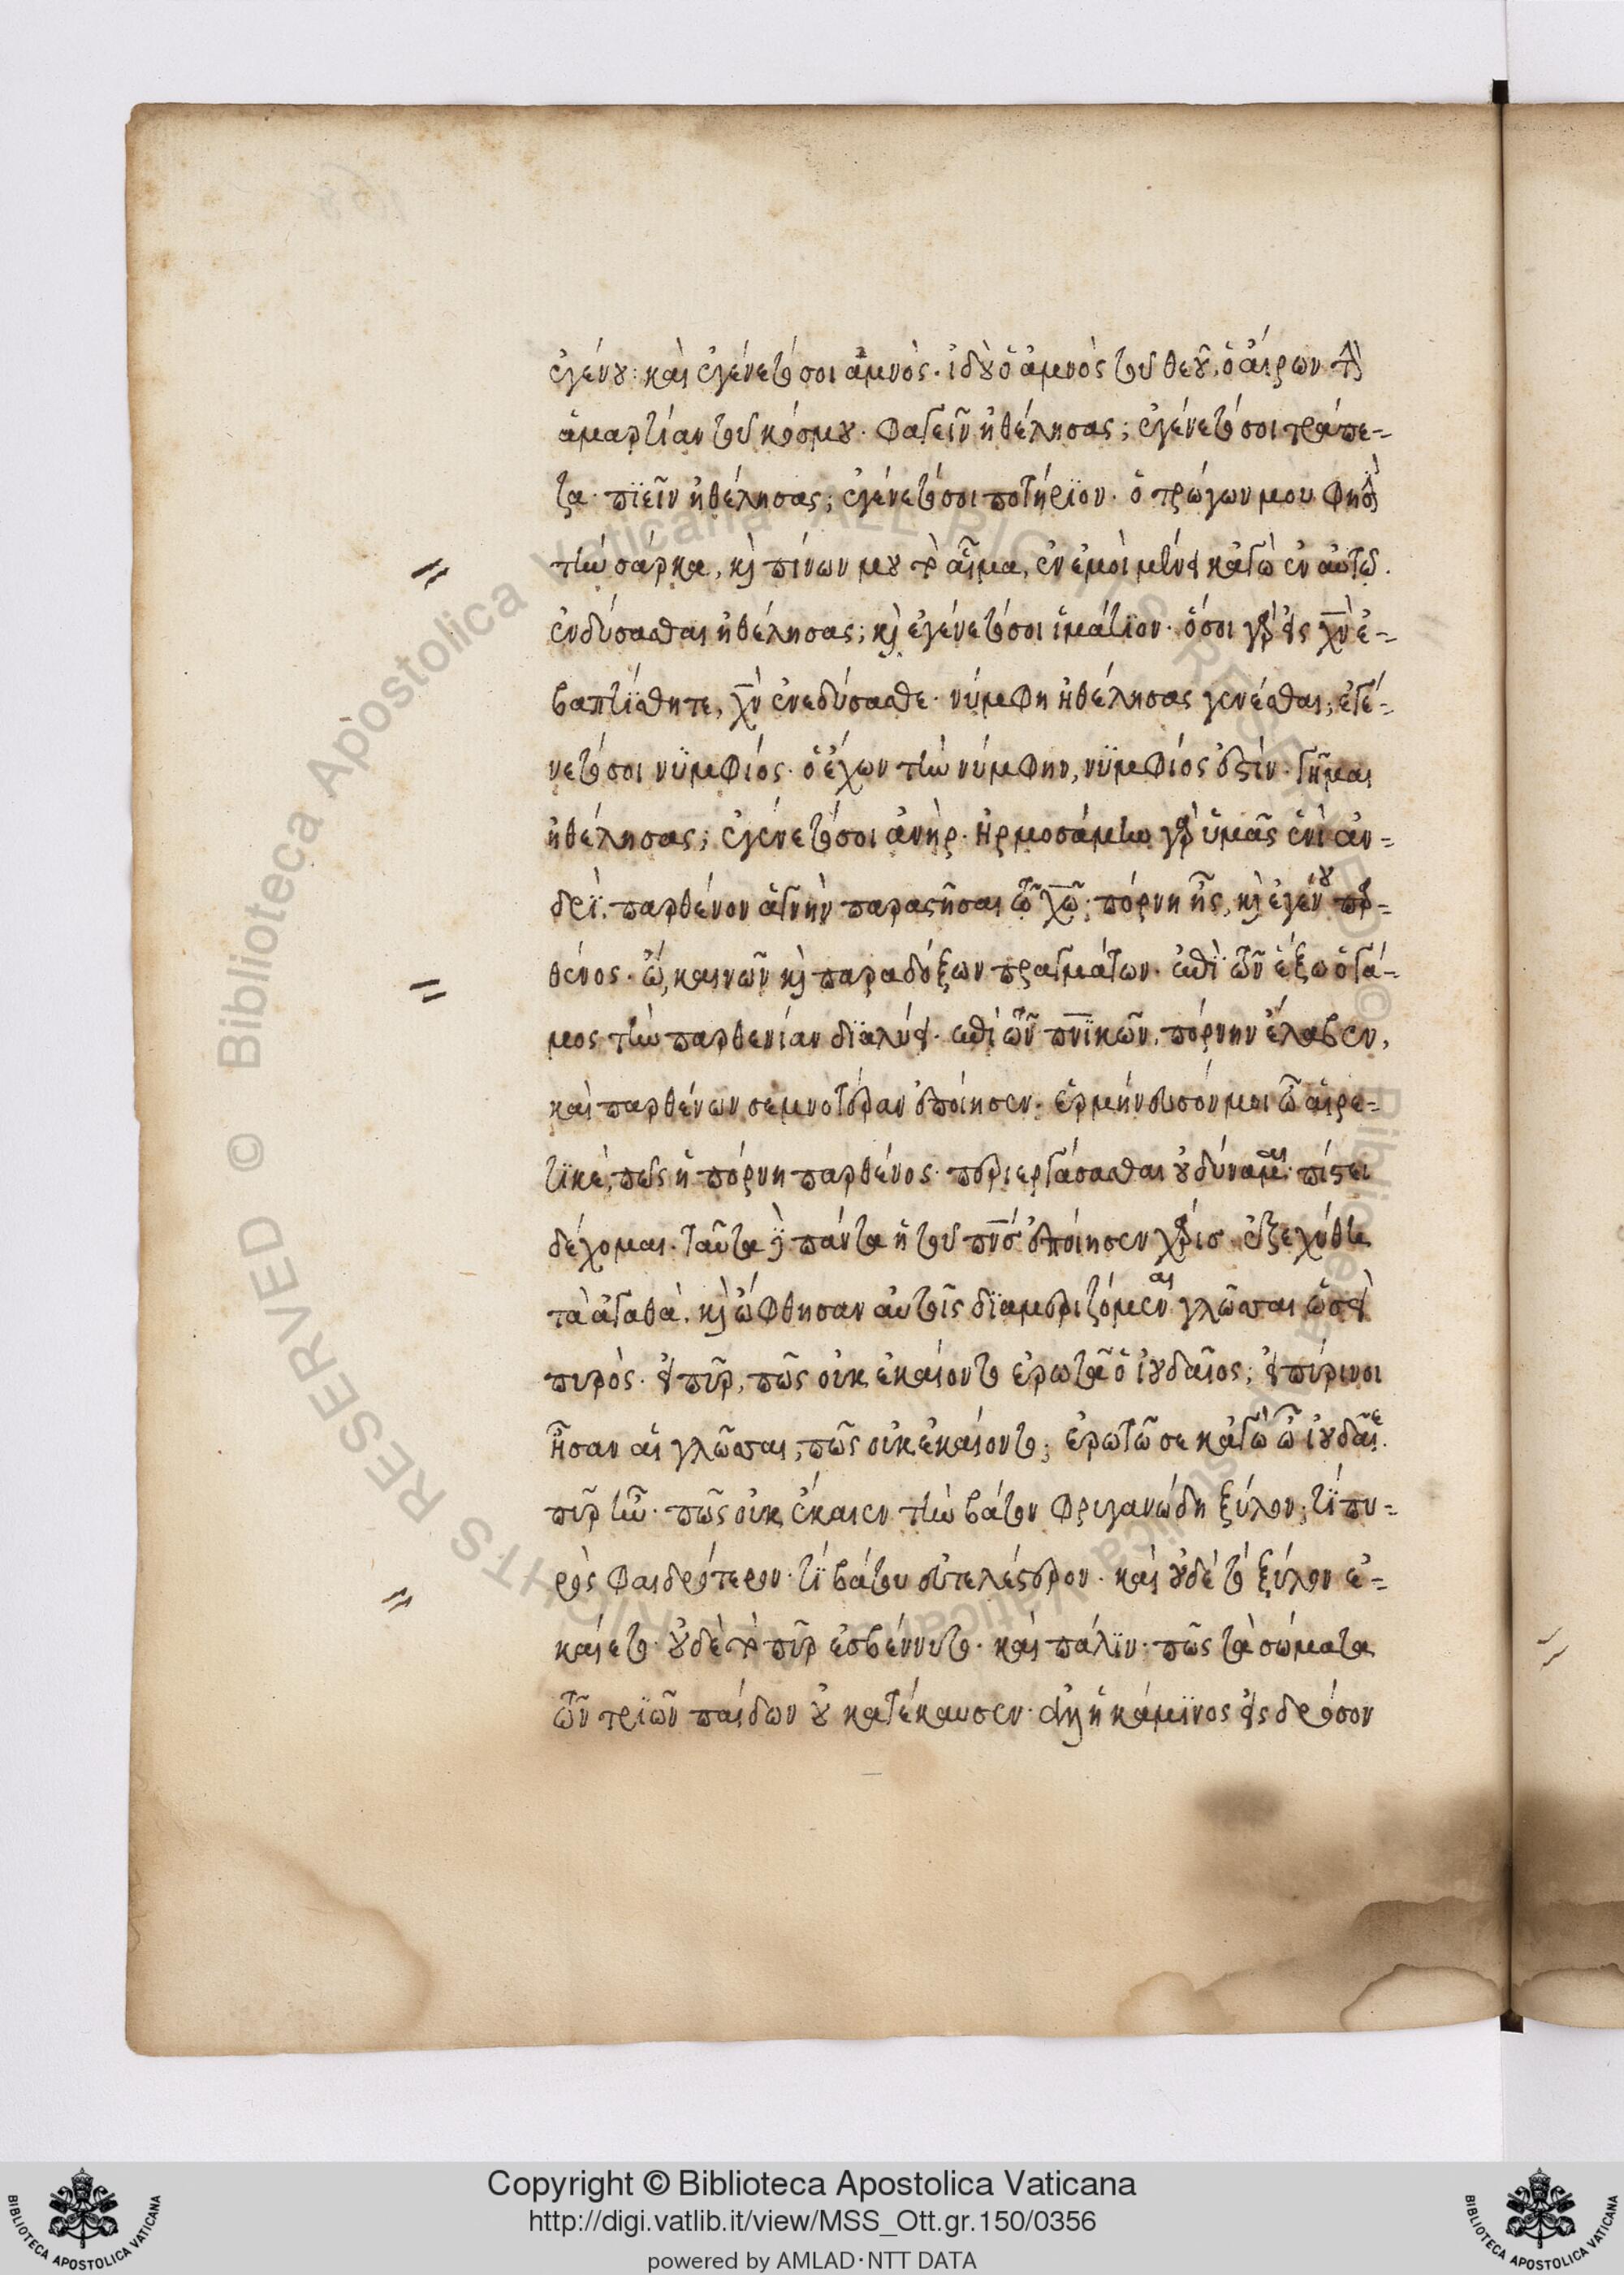 ἐγένου· καὶ ἐγένετό σοι ἀμνὸς. ἰδοὺ ὁ ἀμνὸς τοῦ θεοῦ, ὁ αἴρων τὴν
ἁμαρτίαν τοῦ κόσμου. φαγεῖν ἠθέλησας; ἐγένετό σοι τράπε-
ζα. πϊεῖν ἠθέλησας; ἐγένετό σοι ποτήρϊον. ὁ τρώγων μου φησὶ
τὴν σάρκα, καὶ πίνων μου τὸ αἷμα, ἐν ἐμοὶ μένει κἀγὼ ἐν αὐτῷ.
ἐνδύσασθαι ἠθέλησας; καὶ ἐγένετό σοι ἱμάτϊον. ὅσοι γὰρ εἰς χν ἐ-
βαπτίσθητε, χν ἐνεδύσασθε. νύμφη ἠθέλησας γενέσθαι; ἐγέ-
νετό σοι νϋμφίος. ὁ ἔχων τὴν νύμφην, νϋμφίος ἐστίν. γῆμαι
ἠθέλησας; ἐγένετό σοι ἀνὴρ. ἡρμοσάμην γὰρ ὑμᾶς ἑνὶ ἀν-
δρὶ, παρθένον ἁγνὴν παραστῆσαι τῷ χῷ. πόρνη ἦς, καὶ ἐγένου παρ-
θένος. ὢ, καινῶν καὶ παραδόξων πραγμάτων. ἐπὶ τῶν ἔξω ὁ γά-
μος τὴν παρθενίαν δϊαλύει. ἐπὶ τῶν πνϊκῶν, πόρνην ἔλαβεν,
καὶ παρθένων σεμνοτέραν ἐποίησεν. ἑρμήνευσόν μοι ὦ αἱρε-
τϊκὲ, πῶς ἡ πόρνη παρθένος. περιεργάσασθαι οὐ δύναμαι. πίστει
δέχομαι. ταῦτα δὲ πάντα ἡ τοῦ πνσ ἐποίησεν χάρισ. ἐξεχύθη
τὰ ἀγαθὰ. καὶ ὤφθησαν αὐτοῖς δϊαμεριζόμεναι γλῶσσαι ὡσεὶ
πυρὸς. εἰ πῦρ, πῶς οὐκ ἐκαίοντο ἐρωτᾷ ὁ ἰουδαῖος; εἰ πύρινοι
ἦσαν αἱ γλῶσσαι, πῶς οὐκ ἐκαίοντο; ἐρωτῶ σε κἀγὼ ὦ ἰουδαῖε.
πῦρ ἦν. πῶς οὐκ ἔκαιεν τὴν βάτον φρυγανώδη ξύλον; τί πυ-
ρὸς φαιδρότερον. τί βάτου εὐτελέστερον. καὶ οὐδὲ τὸ ξύλον ἐ-
καίετο. οὐδὲ τὸ πῦρ ἐσβέννυτο. καὶ πάλϊν. πῶς τὰ σώματα
τῶν τρϊῶν παίδων οὐ κατέκαυσεν. ἀλλὰ ἡ κάμϊνος εἰς δρόσον
© Biblioteca Apostolica Vaticana ALL RIGHTS RESERVED
Copyright © Biblioteca Apostolica Vaticana
http://digi.vatlib.it/view/MSS_Ott.gr.150/0356
powered by AMLAD·NTT DATA
BIBLIOTECA APOSTOLICA VATICANA
BIBLIOTECA APOSTOLICA VATICANA